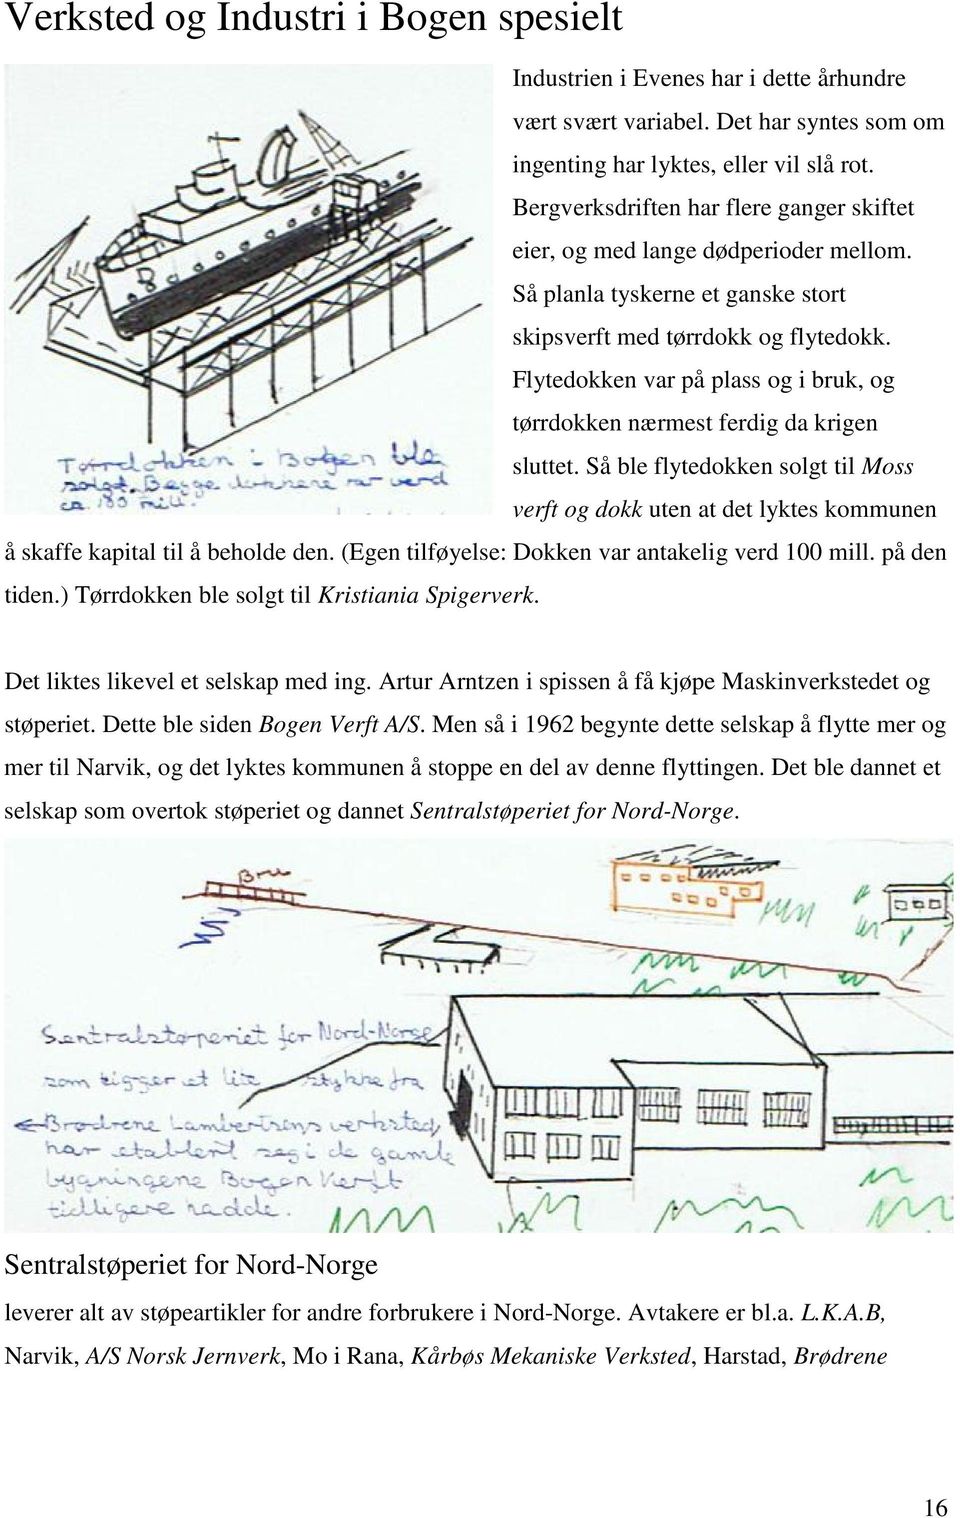 Verksted og Industri i Bogen spesielt
Industrien i Evenes har i dette århundre
vært svært variabel. Det har syntes som om
ingenting har lyktes, eller vil slå rot.
Bergverksdriften har flere ganger skiftet
eier, og med lange dødperioder mellom.
Så planla tyskerne et ganske stort
skipsverft med tørrdokk og flytedokk.
Flytedokken var på plass og i bruk, og
tørrdokken nærmest ferdig da krigen
sluttet. Så ble flytedokken solgt til Moss
verft og dokk uten at det lyktes kommunen
Tørrdokken i Bogen ble
solgt. Begge dokkene var verd
ca. 180 mill.
å skaffe kapital til å beholde den. (Egen tilføyelse: Dokken var antakelig verd 100 mill. på den
tiden.) Tørrdokken ble solgt til Kristiania Spigerverk.
Det liktes likevel et selskap med ing. Artur Arntzen i spissen å få kjøpe Maskinverkstedet og
støperiet. Dette ble siden Bogen Verft A/S. Men så i 1962 begynte dette selskap å flytte mer og
mer til Narvik, og det lyktes kommunen å stoppe en del av denne flyttingen. Det ble dannet et
selskap som overtok støperiet og dannet Sentralstøperiet for Nord-Norge.
Bru
Sentralstøperiet for Nord-Norge
som ligger et lite stykke fra
Brødrene Lambertsens verksted,
har etablert seg i de gamle
bygningene Bogen Verft
tidligere hadde.
Sentralstøperiet for Nord-Norge
leverer alt av støpeartikler for andre forbrukere i Nord-Norge. Avtakere er bl.a. L.K.A.B,
Narvik, A/S Norsk Jernverk, Mo i Rana, Kårbøs Mekaniske Verksted, Harstad, Brødrene
16